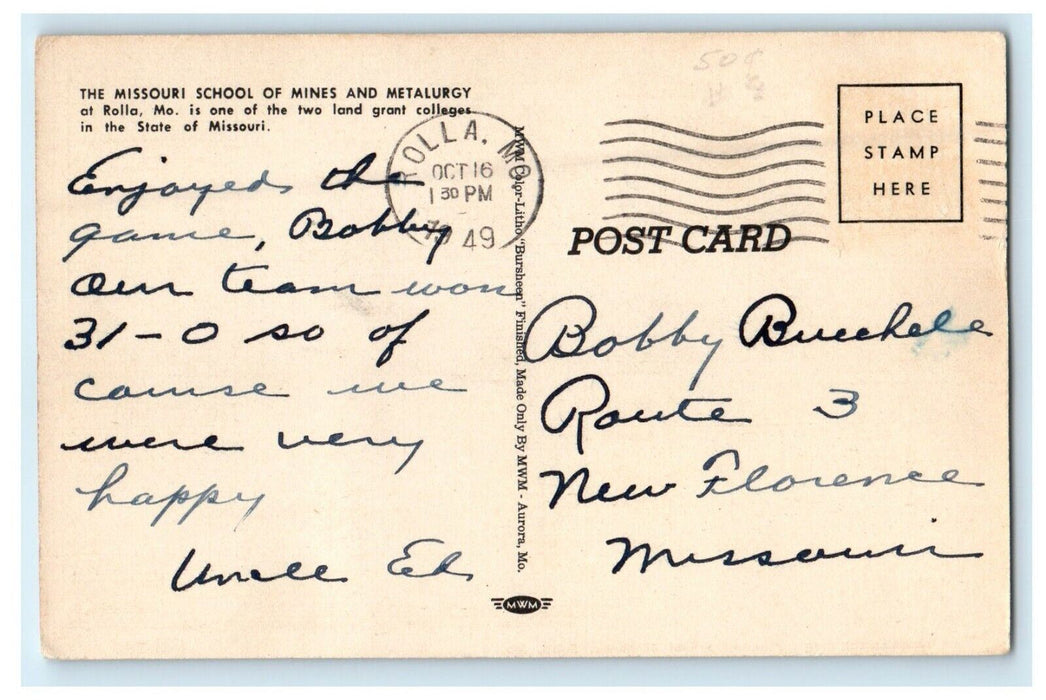 50¢
THE MISSOURI SCHOOL OF MINES AND METALURGY
at Rolla, Mo. is one of the two land grant colleges
in the State of Missouri.
ROLLA, MO
OCT 16
1 30 PM
49
PLACE
STAMP
HERE
POST CARD
Enjoyed the
game, Bobby
Our team won
31-0 so of
course we
were very
happy
Uncle Ed
MWM Color-Litho, "Bursheen" Finished, Made Only By MWM - Aurora, Mo.
Bobby
Route 3
New Florence
Missouri
MWM